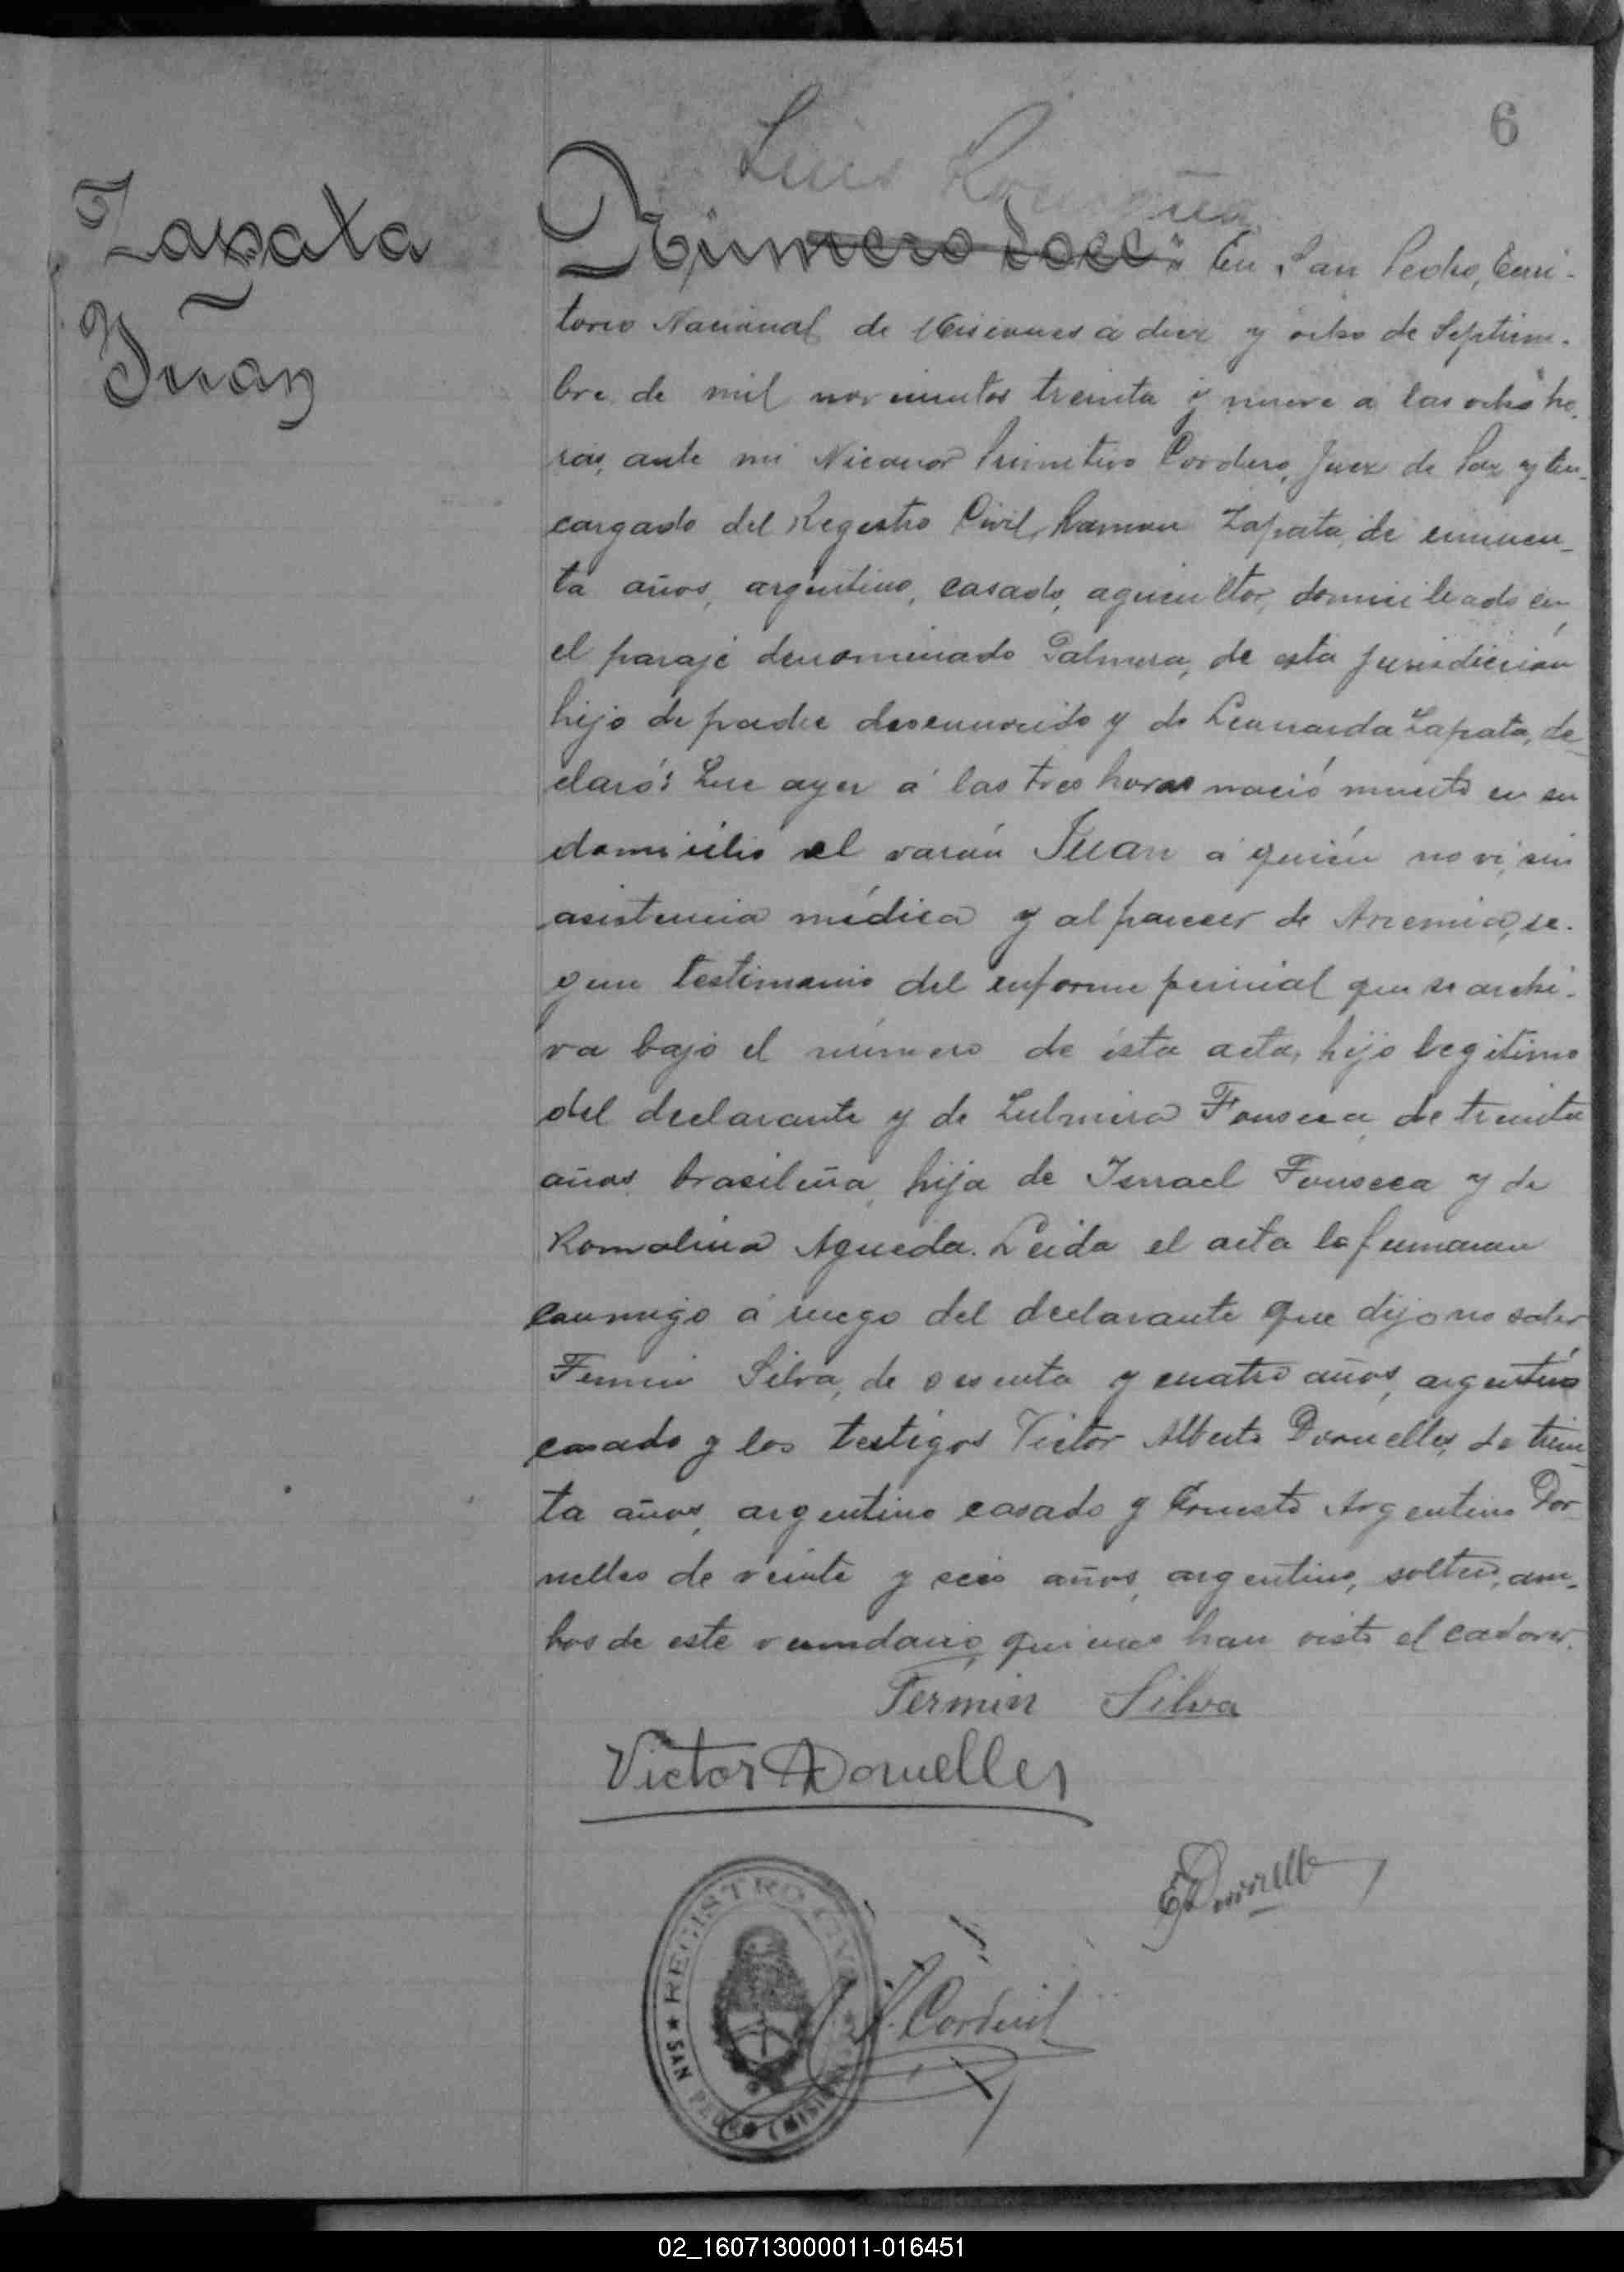 6
Luis
Zapata
Juan
Número doce: En San Pedro, Terri-
torio Nacional de Misiones a diez y ocho de Septiem-
bre de mil novecientos treinta y nueve a las ocho ho-
ras, ante mi Nicanor Primitivo Cordero, Juez de Paz y En-
cargado del Registro Civil, Ramon Zapata, de cincuen-
ta años, argentino, casado, agricultor, domiciliado en
el paraje denominado Palmera, de esta jurisdiccion
hijo de padre desconocido y de Leonarda Zapata, de-
claró: Que ayer á las tres horas nació muerto en su
domicilio el varón Juan a quién no vi, sin
asistencia médica y al parecer de Anemia, se-
gun testimonio del informe pericial que se archi-
va bajo el número de ésta acta, hijo legitimo
del declarante y de Zulmira Fonseca de treinta
años brasileña, hija de Isrrael Fonseca y de
Romalina Agueda. Leida el acta la firmaran
conmigo á ruego del declarante que dijo no saber
Fermin Silva, de sesenta y cuatro años, argentino
casado y los testigos Victor Alberto Dornelles, de trein-
ta años, argentino casado y Ernesto Argentino Dor-
nelles de veinte y seis años, argentino, soltero, am-
bos de este vecindario, quienes han visto el cadaver.
Fermin Silva
Victor A Dornelles
E Dornelle
REGISTRO CIVIL
N. Cordero
★ SAN PEDRO (MISIONES)
02_160713000011-016451